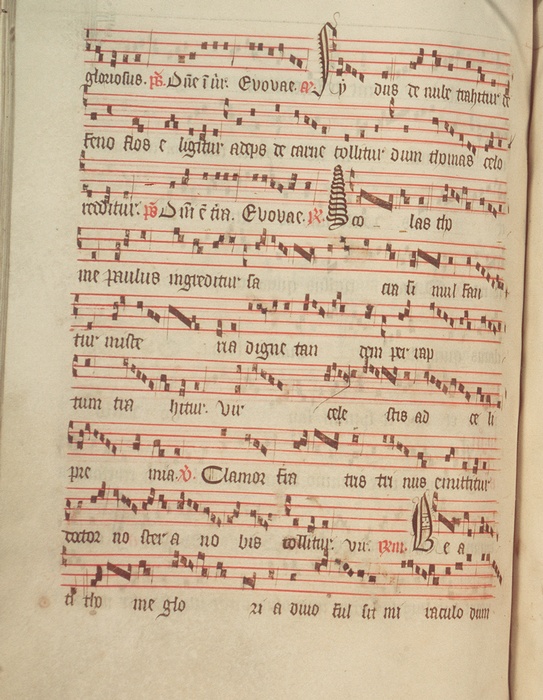 gloriosus. ps. Dñe ĩ uir. Evovae. a. Sy dus de nube trahitur de
feno flos e ligitur adeps de carne tollitur dum thomas celo
redditur. ps Dñi ẽ tra. Evovae. R. Sco las tho
me paulus ingreditur fa cta si mul san
tur miste ria digne tan dem per rap
tum tra hitur. Vir cele stis ad ce li
pre mia. V. Clamor fra tris tri nus emittitur
doctor no ster a no bis tollitur. Vir. Rm. B e a
ti tho me glo ri a diuo ful sit mi raculo dum